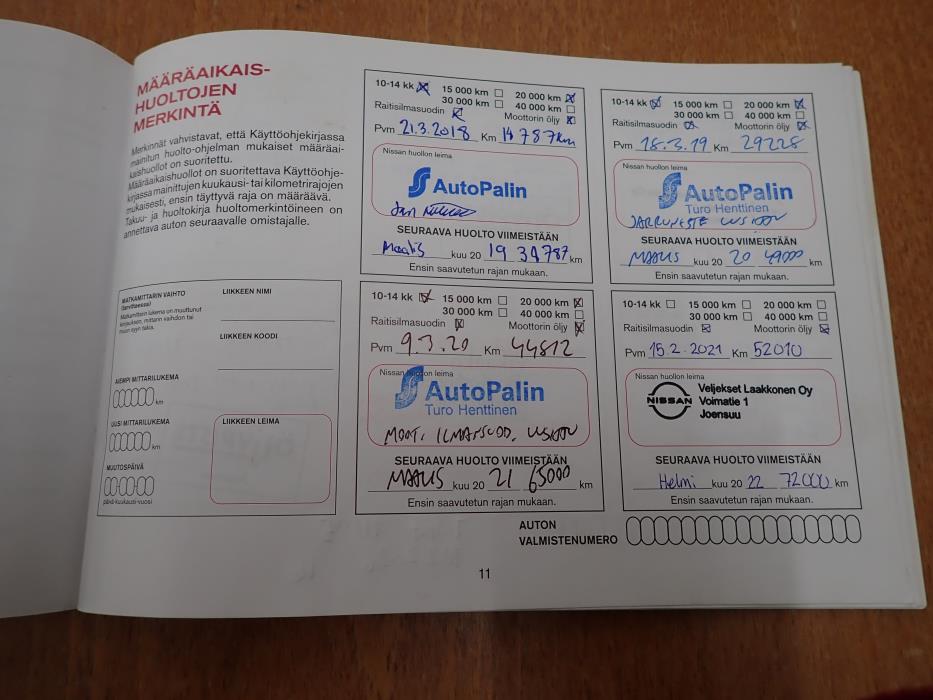 MÄÄRÄAIKAIS-
HUOLTOJEN
MERKINTÄ
Merkinnät vahvistavat, että Käyttöohjekirjassa
mainitun huolto-ohjelman mukaiset määräai-
kaishuollot on suoritettu.
Määräaikaishuollot on suoritettava Käyttöohje-
kirjassa mainittujen kuukausi- tai kilometrirajojen
mukaisesti, ensin täyttyvä raja on määräävä.
Takuu- ja huoltokirja huoltomerkintöineen on
annettava auton seuraavalle omistajalle.
MATKAMITTARIN VAIHTO
(tarvittaessa)
Matkamittarin lukema on muuttunut
korjauksen, mittarin vaihdon tai
muun syyn takia.
AIEMPI MITTARILUKEMA
km
UUSI MITTARILUKEMA
km
MUUTOSPÄIVÄ
päivä-kuukausi-vuosi
LIIKKEEN NIMI
LIIKKEEN KOODI
LIIKKEEN LEIMA
10-14 kk 15 000 km 20 000 km
30 000 km 40 000 km
Raitisilmasuodin Moottorin öljy
Pvm 21.3.2018 Km 14787km
Nissan huollon leima
AutoPalin
SEURAAVA HUOLTO VIIMEISTÄÄN
Maalis kuu 20 19 34787 km
Ensin saavutetun rajan mukaan.
10-14 kk 15 000 km 20 000 km
30 000 km 40 000 km
Raitisilmasuodin Moottorin öljy
Pvm 18.3.19 Km 29228
Nissan huollon leima
AutoPalin
Turo Henttinen
JARRUNESTE UUSITTU
SEURAAVA HUOLTO VIIMEISTÄÄN
MAALIS kuu 20 20 49000 km
Ensin saavutetun rajan mukaan.
10-14 kk 15 000 km 20 000 km
30 000 km 40 000 km
Raitisilmasuodin Moottorin öljy
Pvm 9.3.20 Km 44812
Nissan huollon leima
AutoPalin
Turo Henttinen
MOOT. ILMANSUOD. UUSITTU
SEURAAVA HUOLTO VIIMEISTÄÄN
MAALIS kuu 20 21 65000 km
Ensin saavutetun rajan mukaan.
10-14 kk 15 000 km 20 000 km
30 000 km 40 000 km
Raitisilmasuodin Moottorin öljy
Pvm 15.2.2021 Km 52010
Nissan huollon leima
NISSAN
Veljekset Laakkonen Oy
Voimatie 1
Joensuu
SEURAAVA HUOLTO VIIMEISTÄÄN
Helmi kuu 20 22 72000 km
Ensin saavutetun rajan mukaan.
AUTON
VALMISTENUMERO
11